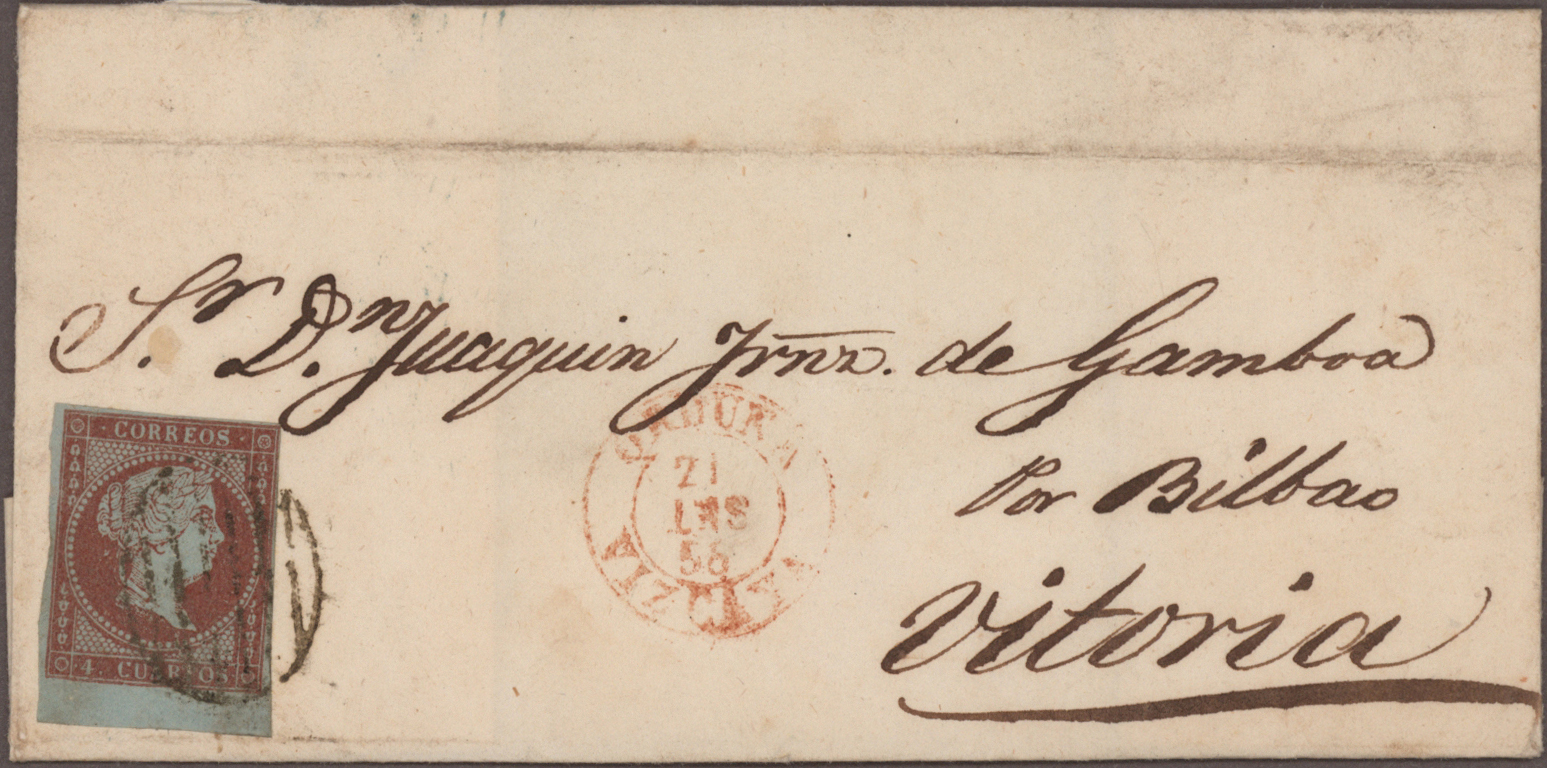 Sr. Dn. Juaquin Frnz. de Gamboa
Por Bilbao
Vitoria
CORREOS
4. CUARTOS
21
56
VIZCAYA